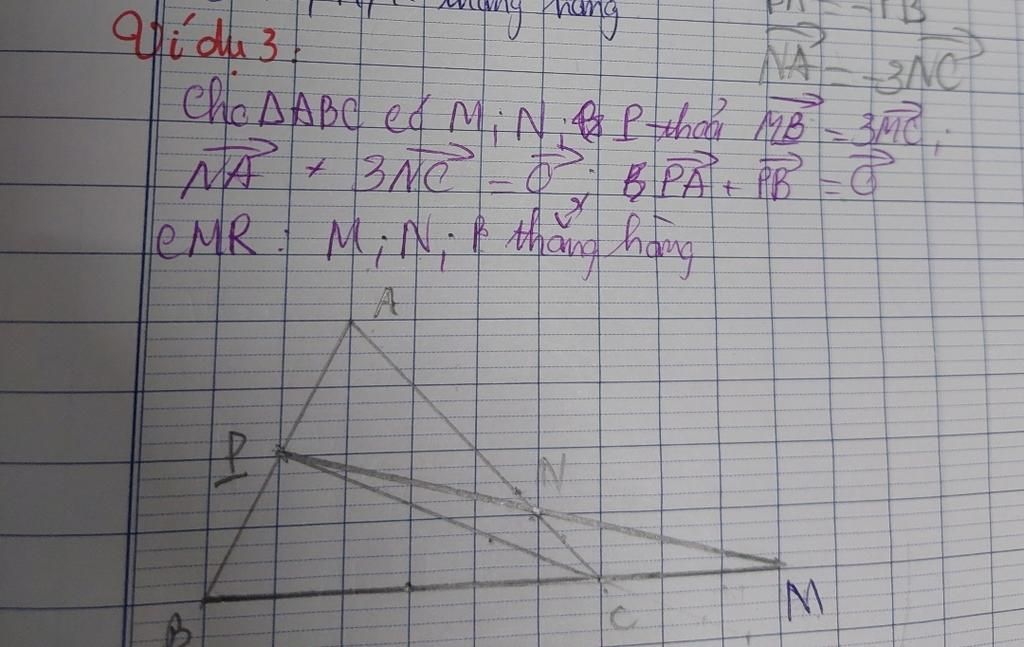 thẳng hàng
PA = -PB
Ví dụ 3:
NA = -3NC
Cho ΔABC có M; N; P thỏa MB = 3MC;
NA + 3NC = 0; PA + PB = 0
CMR: M; N; P thẳng hàng
A
P
N
B
C
M